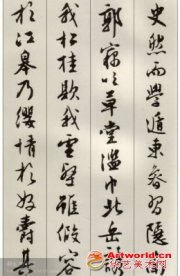 史然而學遁東魯習隱南
郭竊吹草堂濫巾北岳誘
我松桂欺我雲壑雖假容
於江皋乃纓情於好爵其
Artworld.cn